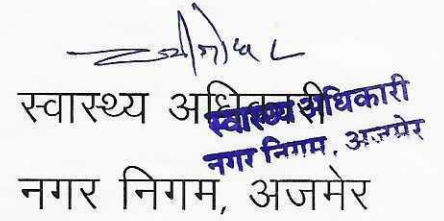 स्वास्थ्य अधिकारी
स्वास्थ्य अधिकारी
नगर निगम, अजमेर
नगर निगम, अजमेर